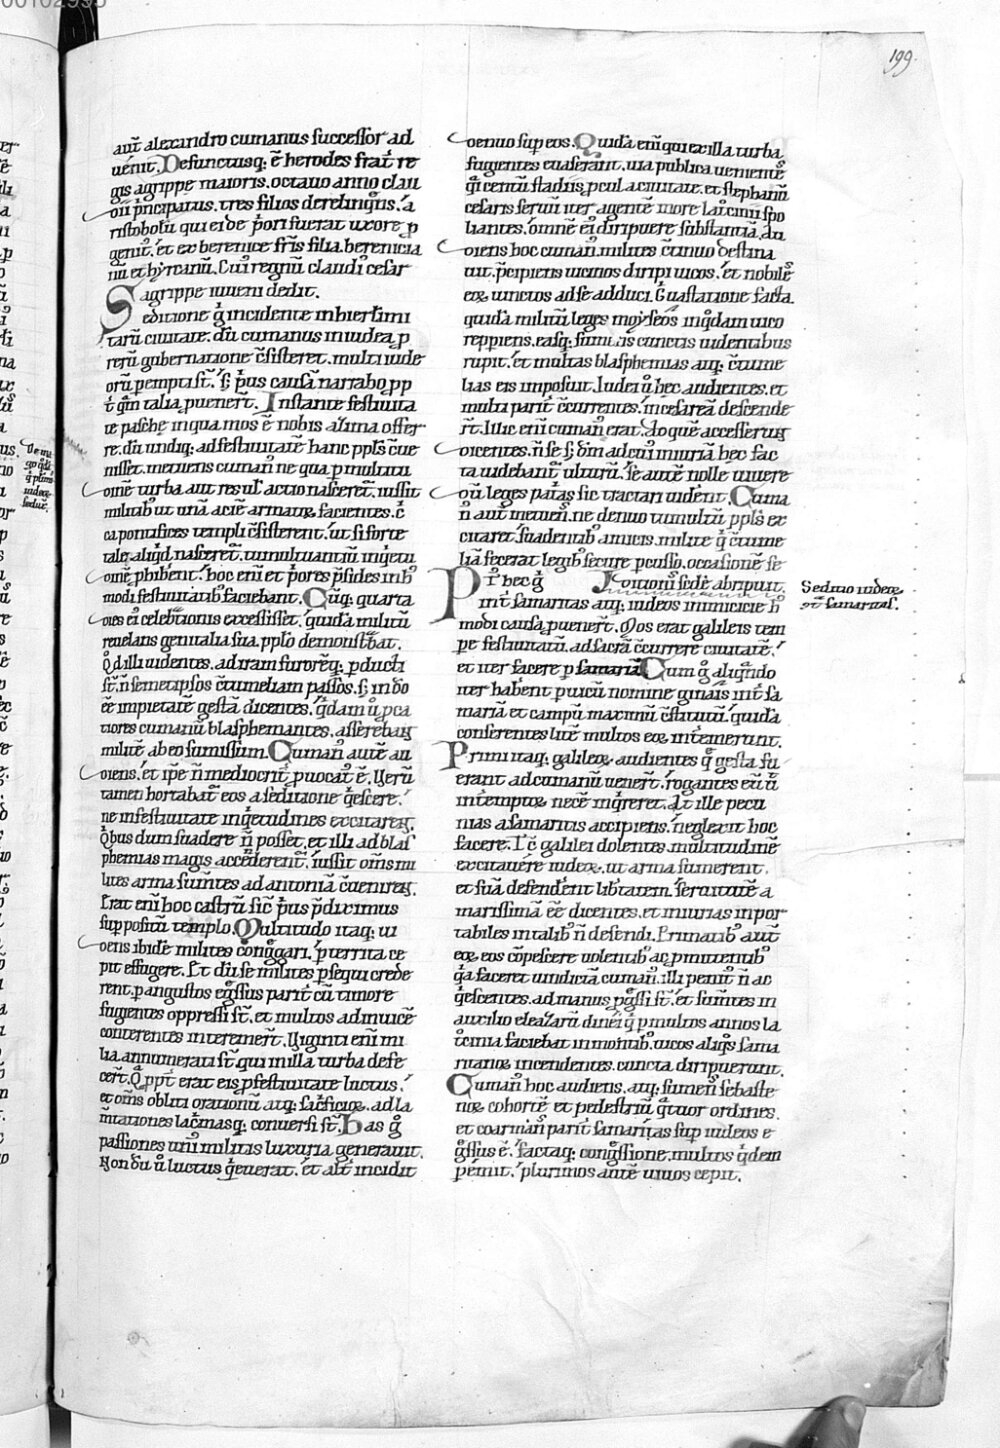 199
aut̄ alexandro cumanus successor ad
uénit. Defunctusq; ē herodes frat̄ re
gis agrippe maioris. octauo anno clau
dii p̄ncipatus. tres filios derelinquēs. a
ristobolū qui ei de p̄ori fuerat uxore p
genit'. et ex berenice fr̄is filia berenicia
nū et hyrcanū. Cui' regnū claudi' cesar
agrippe iuueni dedit.
Seditione g̊ incidente in hierl̄imi
tarū ciuitate. dū cumanus in iudea p
rerū gubernatione c̄sisteret. multi iude
orū pempti st̄. s; p̄us causā narrabo pp
t̄ qm̄ talia puener̄t. Instante festiuita
te pasche in qua mos ē nobis azima offer
re. dū undiq; ad festiuitatē hanc ppl̄s c̄ue
nisset. metuens cuman' ne qua p multitu
dinē turba aut res ul' actio nasceret̄. iussit
militib' ut unā aciē armatā facientes. c̄
ca porticus templi c̄sisterent. ut si forte
tale aliqd̄ nasceret̄. tumultuantiū inq̇etu
dinē phiberent. hoc enī et p̄ores p̄sides in h'
modi festiuitatib' faciebant. Cūq; quarta
dies ei' celebrationis excessisset. quidā militū
reuelans genitalia sua pplo demonstrabat.
Qd̄ illi uidentes. ad iram furorēq; pducti
st̄. n̄ semetipsos c̄tumeliam passos. s; in dō
ēē impietatē gestā dicentes. quidam ū pca
tiores cumanū blasphemantes. asserebant
militē ab eo sumissum. Cuman' autē au
diens. et ip̄e n̄ mediocrit̄ puocat' ē. Uerū
tamen hortabat̄ eos a seditione q̇escere.
ne in festiuitate inq̇etudines excitarent.
Q̇bus dum suadere n̄ posset. et illi ad blas
phemias magis accenderent̄. iussit om̄s mi
lites arma sum̄tes ad antoniā c̄uenirent.
Erat enī hoc castrū sic̄ p̄us p̄diximus
suppositū templo. Multitudo itaq; ui
dens ibidē milites congregari. p̄territa ce
pit effugere. Et dū se milites psequi crede
rent. p angustos egressus parit̄ cū timore
fugientes oppressi st̄. et multos ad inuicē
conterentes interemer̄t. Uiginti enī mi
lia annumerati st̄. qui in illa turba defe
cer̄t. Q̄ppt̄ erat eis p festiuitate luctus.
et om̄s obliti orationū atq; sac̄ficioꝝ. ad la
m̄tationes lac̄imasq; conuersi st̄. has g̊
passiones uni' militis luxuria generauit.
Nondū ū luctus q̇euerat. et alt̄ incidit
denuo sup eos. Quidā enī qui ex illa turba
fugientes euaserant. uia publica uenientē
q̇ centū stadiis pcul a ciuitate. et stephanū
cesaris seruū iter agentē more latrocinii spo
liantes. omnē ei' diripuere substantiā. Au
diens hoc cuman'. milites c̄tinuo destina
uit. p̄cipiens uicinos diripi uicos. et nobilē
eoꝝ uinctos ad se adduci. g̊ uastatione facta.
quidā militū leges moyseos inq̇dam uico
reppiens. easq; sumens cunctis uidentibus
rupit. et multas blasphemias atq; c̄tume
lias eis imposuit. Iudei ū hec audientes. et
multi parit̄ c̄currentes. in cesareā descende
rt̄. Illic enī cuman' erat. Ad quē accesserunt
dicentes. n̄ se s; dm̄ ad cui' iniuriā hec fac
ta uidebant̄ ulturū. Se autē nolle uiuere
dū leges pat̄as sic tractari uident. Cuma
n' aut̄ metuens. ne denuo tumultū ppl̄s ex
citaret. suadentib' amicis. militē q̇ c̄tume
liā fecerat legib' secure pcussio. occasionē se
ditionū sedē abripuit.
Pt̄ hec g̊
int̄ samaritas atq; iudeos inimicicie h'
modi causā puener̄t. Mos erat galileis tem
pe festiuitatū. ad sacrā c̄currere ciuitatē.
et iter facere p samariā. Cum g̊ aliqn̄do
iter habent p uicū nomine ginais int̄ sa
mariā et campū maximū c̄stitutū. quidā
conserentes litē multos eoꝝ int̄emerunt.
Primi itaq; galileoꝝ audientes q̄ gesta fu
erant ad cumanū uener̄t. rogantes eū ū
int̄emptoꝝ necē inq̇reret. At ille pecu
nias a samaritis accipiens. neglexit hoc
facere. Ic̄ galilei dolentes. multitudinē
excitauére iudeoꝝ. ut arma sumerent.
et suā defenderent lib̄tatem. seruitutē a
marissimā ēē dicentes. et iniurias inpor
tabiles in talib' n̄ defendi. Primatib' autē
eoꝝ eos c̄pescere uolentib' ac pmittentib'
q̇a faceret uindictā cuman'. illi penit' n̄ ac
q̇escentes. ad manus pgressi st̄. et sum̄tes in
auxilio eleazarū dinei q̇ p multos annos la
t̄cinia faciebat in montib'. uicos aliq̇s sama
ritanoꝝ incendentes. cuncta diripuerunt.
Cuman' hoc audiens. atq; sumens sebaste
noꝝ cohortē et pedestriū q̇tuor ordines.
et coarmans parit̄ samaritas sup iudeos e
gressus ē. factaq; congressione. multos q̇dem
pēmit. plurimos autē uiuos cepit.
Seditio iudeoꝝ
ꝯt̄ samaritas.